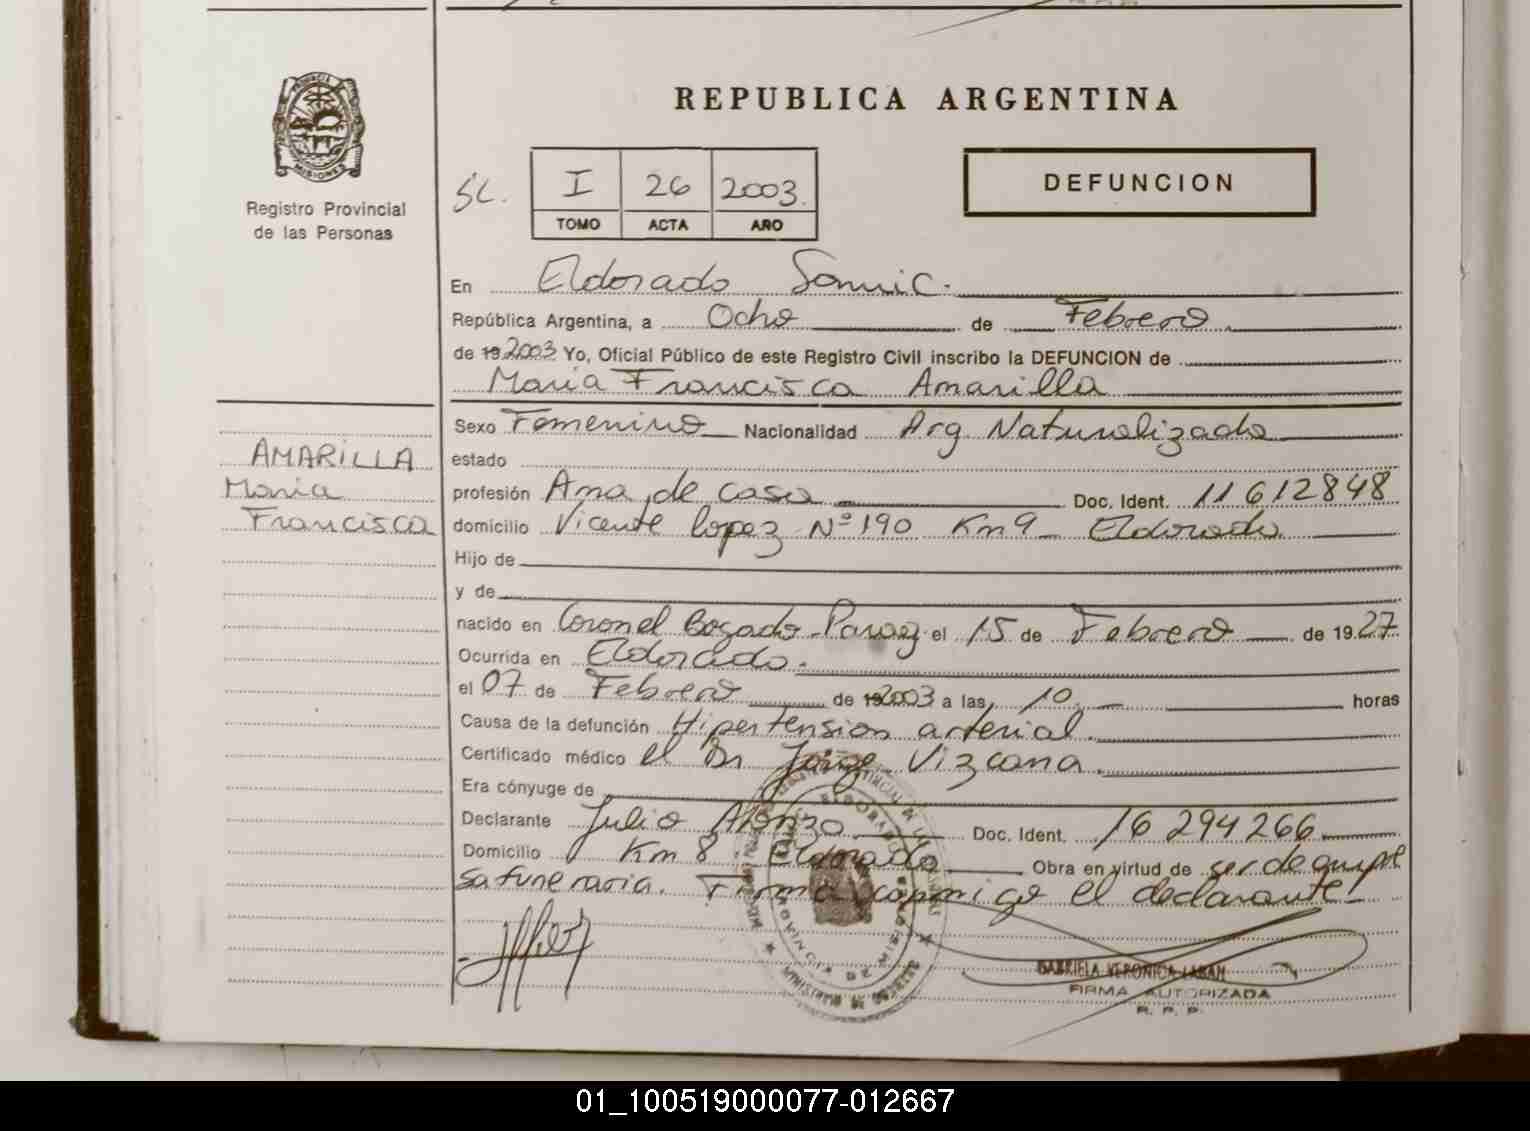 REPUBLICA ARGENTINA
PROVINCIA DE
MISIONES
Registro Provincial
de las Personas
SC. I 26 2003.
TOMO ACTA AÑO
DEFUNCION
En Eldorado Samic.
República Argentina, a Ocho de Febrero
de 19 2003 Yo, Oficial Público de este Registro Civil inscribo la DEFUNCION de
Maria Francisca Amarilla
Sexo Femenino Nacionalidad Arg Naturalizada
AMARILLA
Maria
Francisca
estado
profesión Ama de casa Doc. Ident. 11612848
domicilio Vicente lopez Nº 190 Km 9 Eldorado
Hijo de
y de
nacido en Coronel Bogado Parag el 15 de Febrero de 19 27
Ocurrida en Eldorado.
el 07 de Febrero de 19 2003 a las 10 horas
Causa de la defunción Hipertension arterial.
Certificado médico el Dr Jorge Vizcana.
Era cónyuge de
Declarante Julio Alonzo Doc. Ident. 16 294266
Domicilio Km 8 Eldorado Obra en virtud de ser de empre
sa funeraria. Firma conmigo el declarante
ELDORADO
PROVINCIA DE MISIONES
GABRIELA VERONICA
FIRMA AUTORIZADA
R. P. P.
01_100519000077-012667